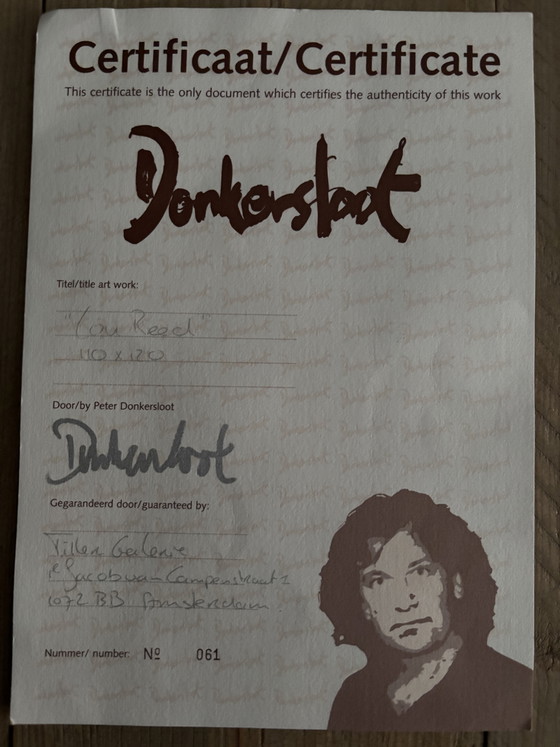 Certificaat/Certificate
This certificate is the only document which certifies the authenticity of this work
Donkersloot
Titel/title art work:
"Lou Reed"
110 x 120
Door/by Peter Donkersloot
Donkersloot
Gegarandeerd door/guaranteed by:
Galerie
Jacob van Campenstraat
1072 BB Amsterdam
Nummer/ number: Nº 061